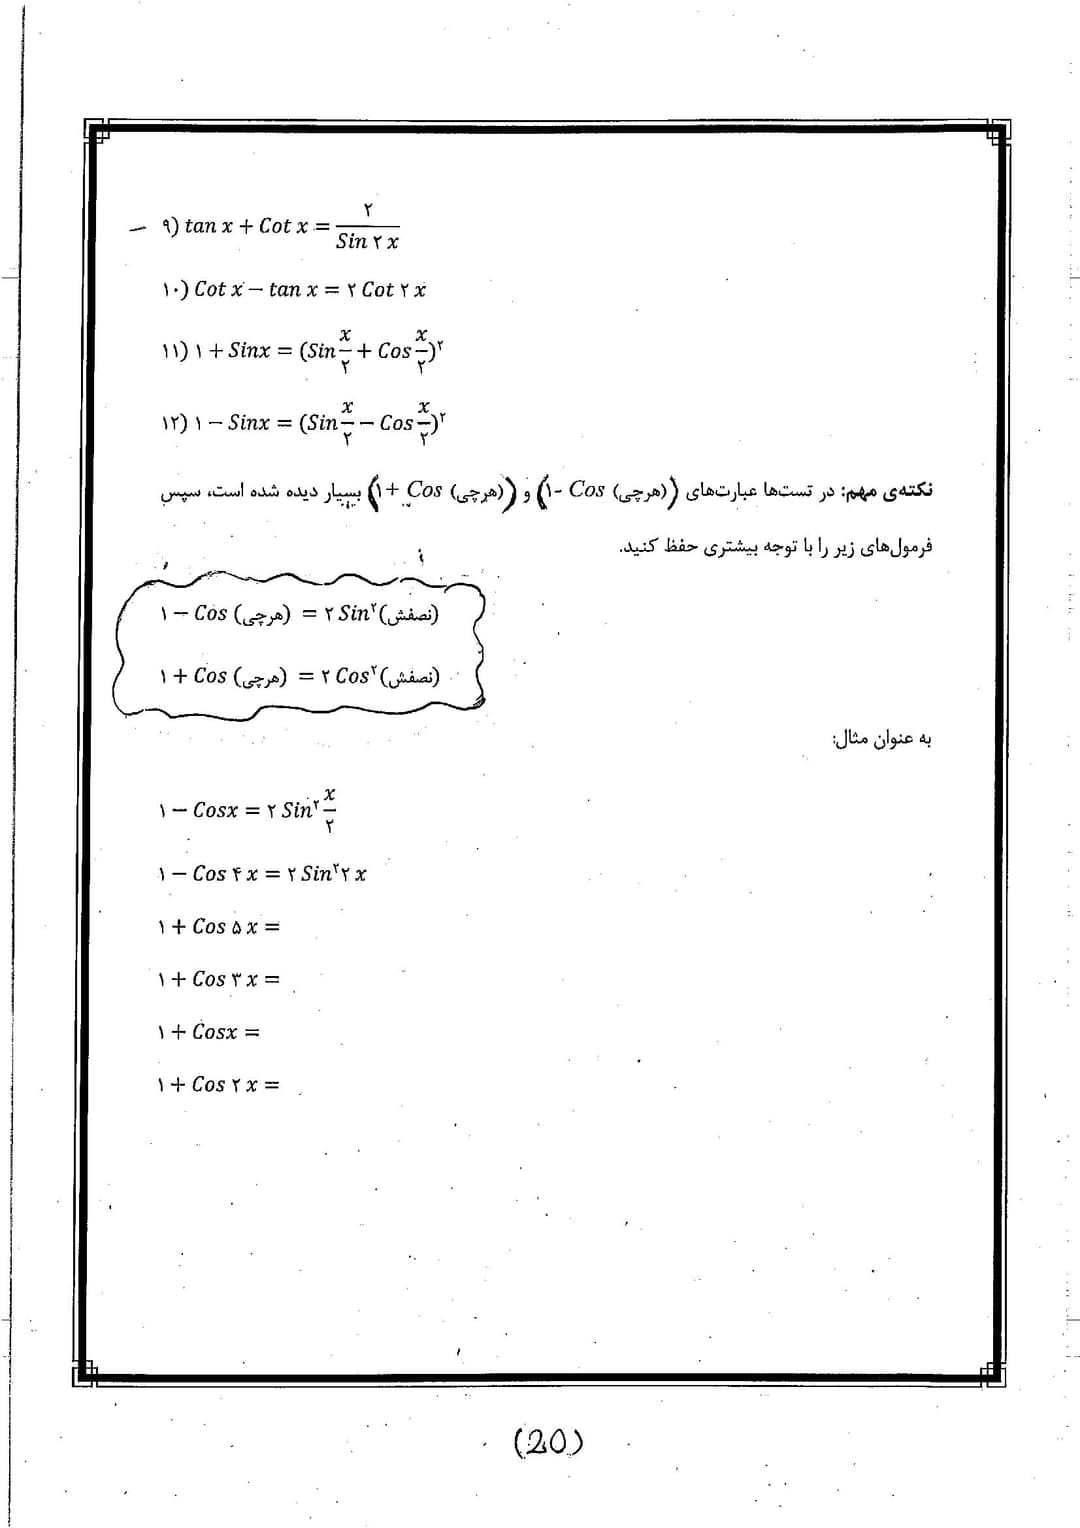 ۹) tan x + Cot x = ۲ / Sin ۲ x
۱۰) Cot x − tan x = ۲ Cot ۲ x
۱۱) ۱ + Sinx = (Sin x/۲ + Cos x/۲)^۲
۱۲) ۱ − Sinx = (Sin x/۲ − Cos x/۲)^۲
نکته‌ی مهم: در تست‌ها عبارت‌های (۱- Cos (هرچی)) و (۱+ Cos (هرچی)) بسیار دیده شده است، سپس
فرمول‌های زیر را با توجه بیشتری حفظ کنید.
۱ − Cos (هرچی) = ۲ Sin^۲(نصفش)
۱ + Cos (هرچی) = ۲ Cos^۲(نصفش)
به عنوان مثال:
۱ − Cosx = ۲ Sin^۲ x/۲
۱ − Cos ۴ x = ۲ Sin^۲ ۲ x
۱ + Cos ۵ x =
۱ + Cos ۳ x =
۱ + Cosx =
۱ + Cos ۲ x =
(20)